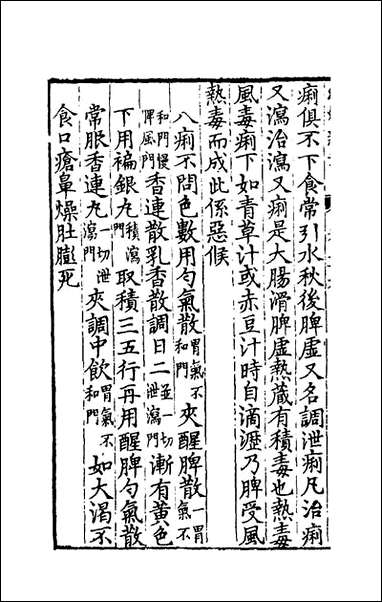 痢俱不下食常引水秋後脾虛又名調泄痢凡治痢
又瀉治瀉又痢是大腸滑脾虛熱蔵有積毒也熱毒
風毒痢下如青草汁或赤豆汁時自滴瀝乃脾受風
熱毒而成此係惡候
八痢不問色數用勻氣散胃氣不和門夾醒脾散一胃氣不
和門慢脾風門香連散乳香散調日二並一切泄瀉門漸有黄色
下用褊銀丸積瀉門取積三五行再用醒脾勻氣散
常服香連丸一切泄瀉門夾調中飲胃氣不和門如大渴不
食口瘡鼻燥肚膨死